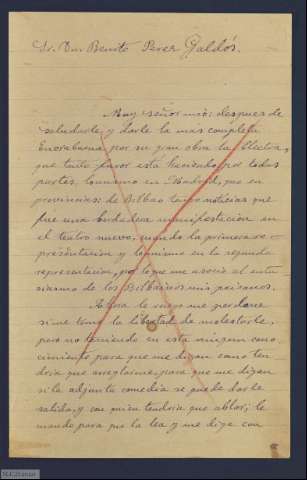 Sr. Dn. Benito Perez Galdós.
Muy señor mio: despues de
saludarle, y darle la mas completa
Enorabuena por su gran obra la Electra,
que tanto furor esta haciendo por todas
partes, lo mismo en Madrid, que en
provincias; de Bilbao tengo noticias que
fue una verdadera manifestación en
el teatro nuevo, cuando la primera re-
presentación y lo mismo en la segunda
representación, por lo que me asocio al entu
siasmo de los Bilbainos mis paisanos.
Ahora le ruego me perdone
si me tomo la libertad de molestarle,
pero no teniendo en esta ningun cono
cimiento para que me digan como ten
dria que arreglarme, para que me digan
si la adjunta comedia se puede darle
salida, y con quien tendria que ablar; le
mando para que la lea y me diga con